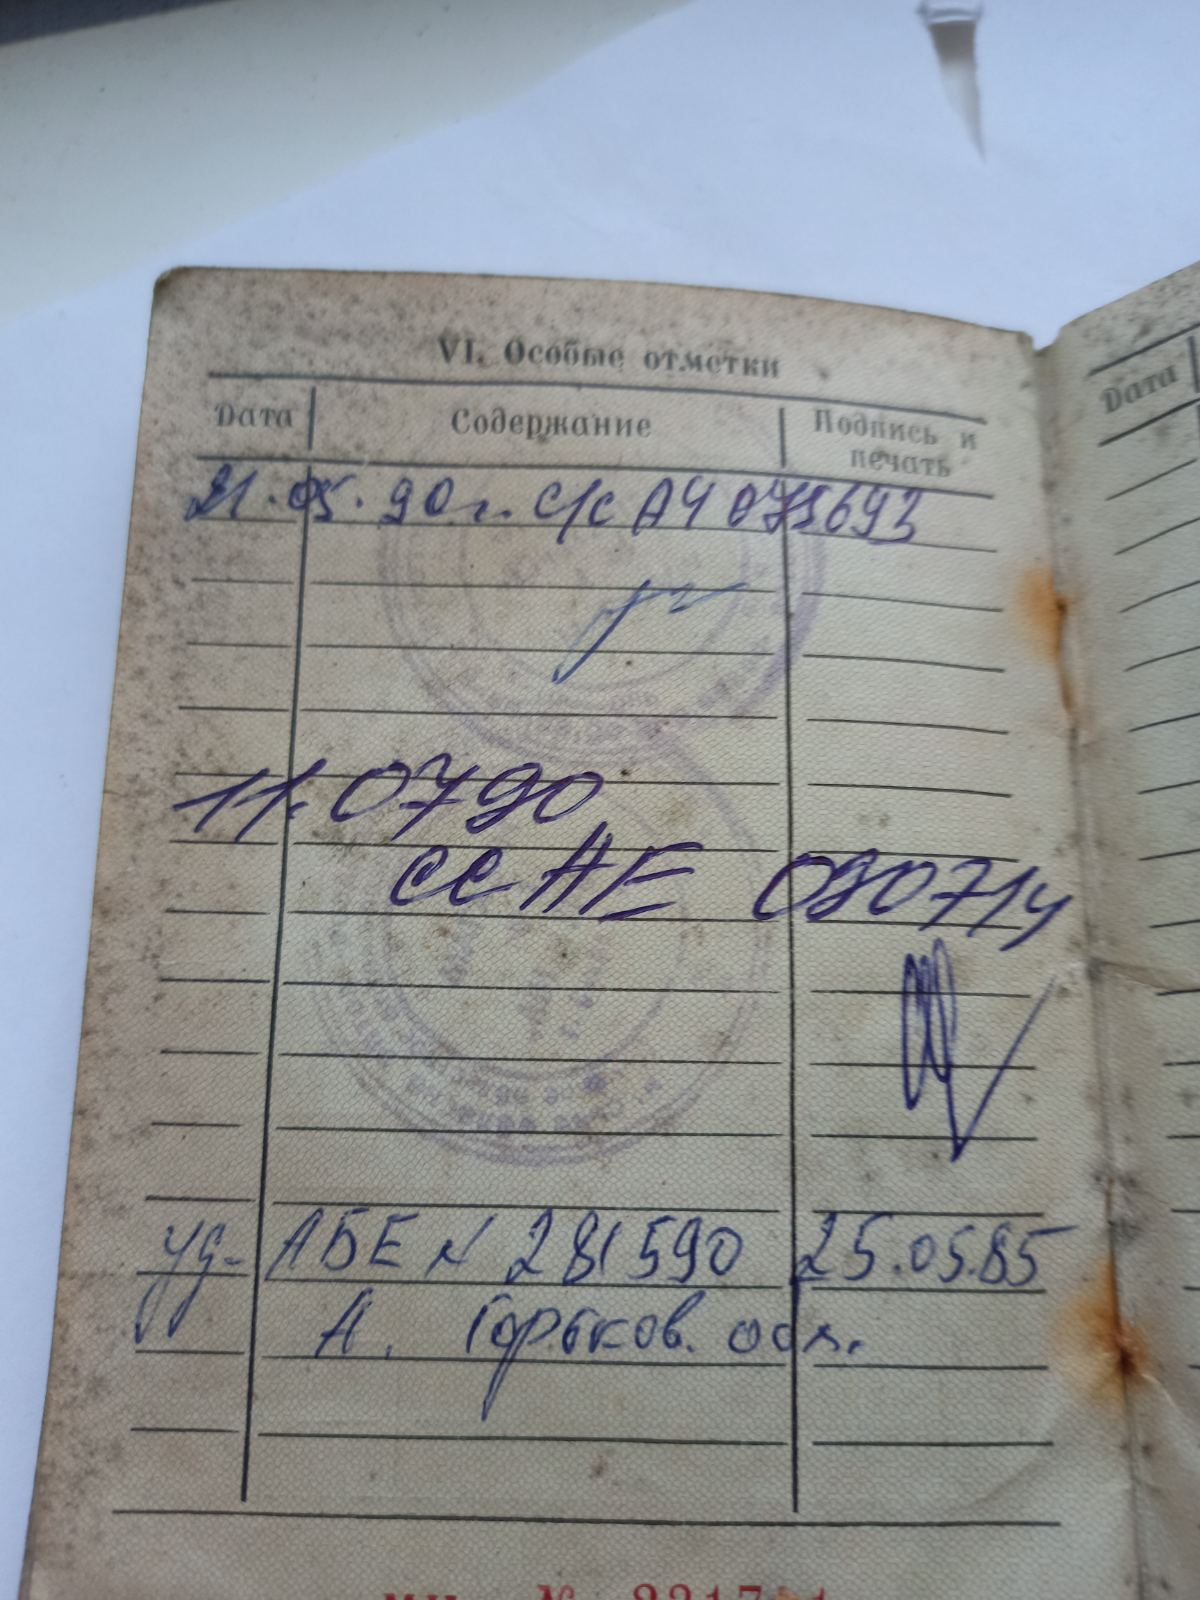 VI. Особые отметки
Дата
Содержание
Подпись и
печать
21.05.90г. с/с АЧ 075693
11.0790
сс АЕ 090714
уд- АБЕ N 281590 25.05.85
А. Горьков. обл.
Дата